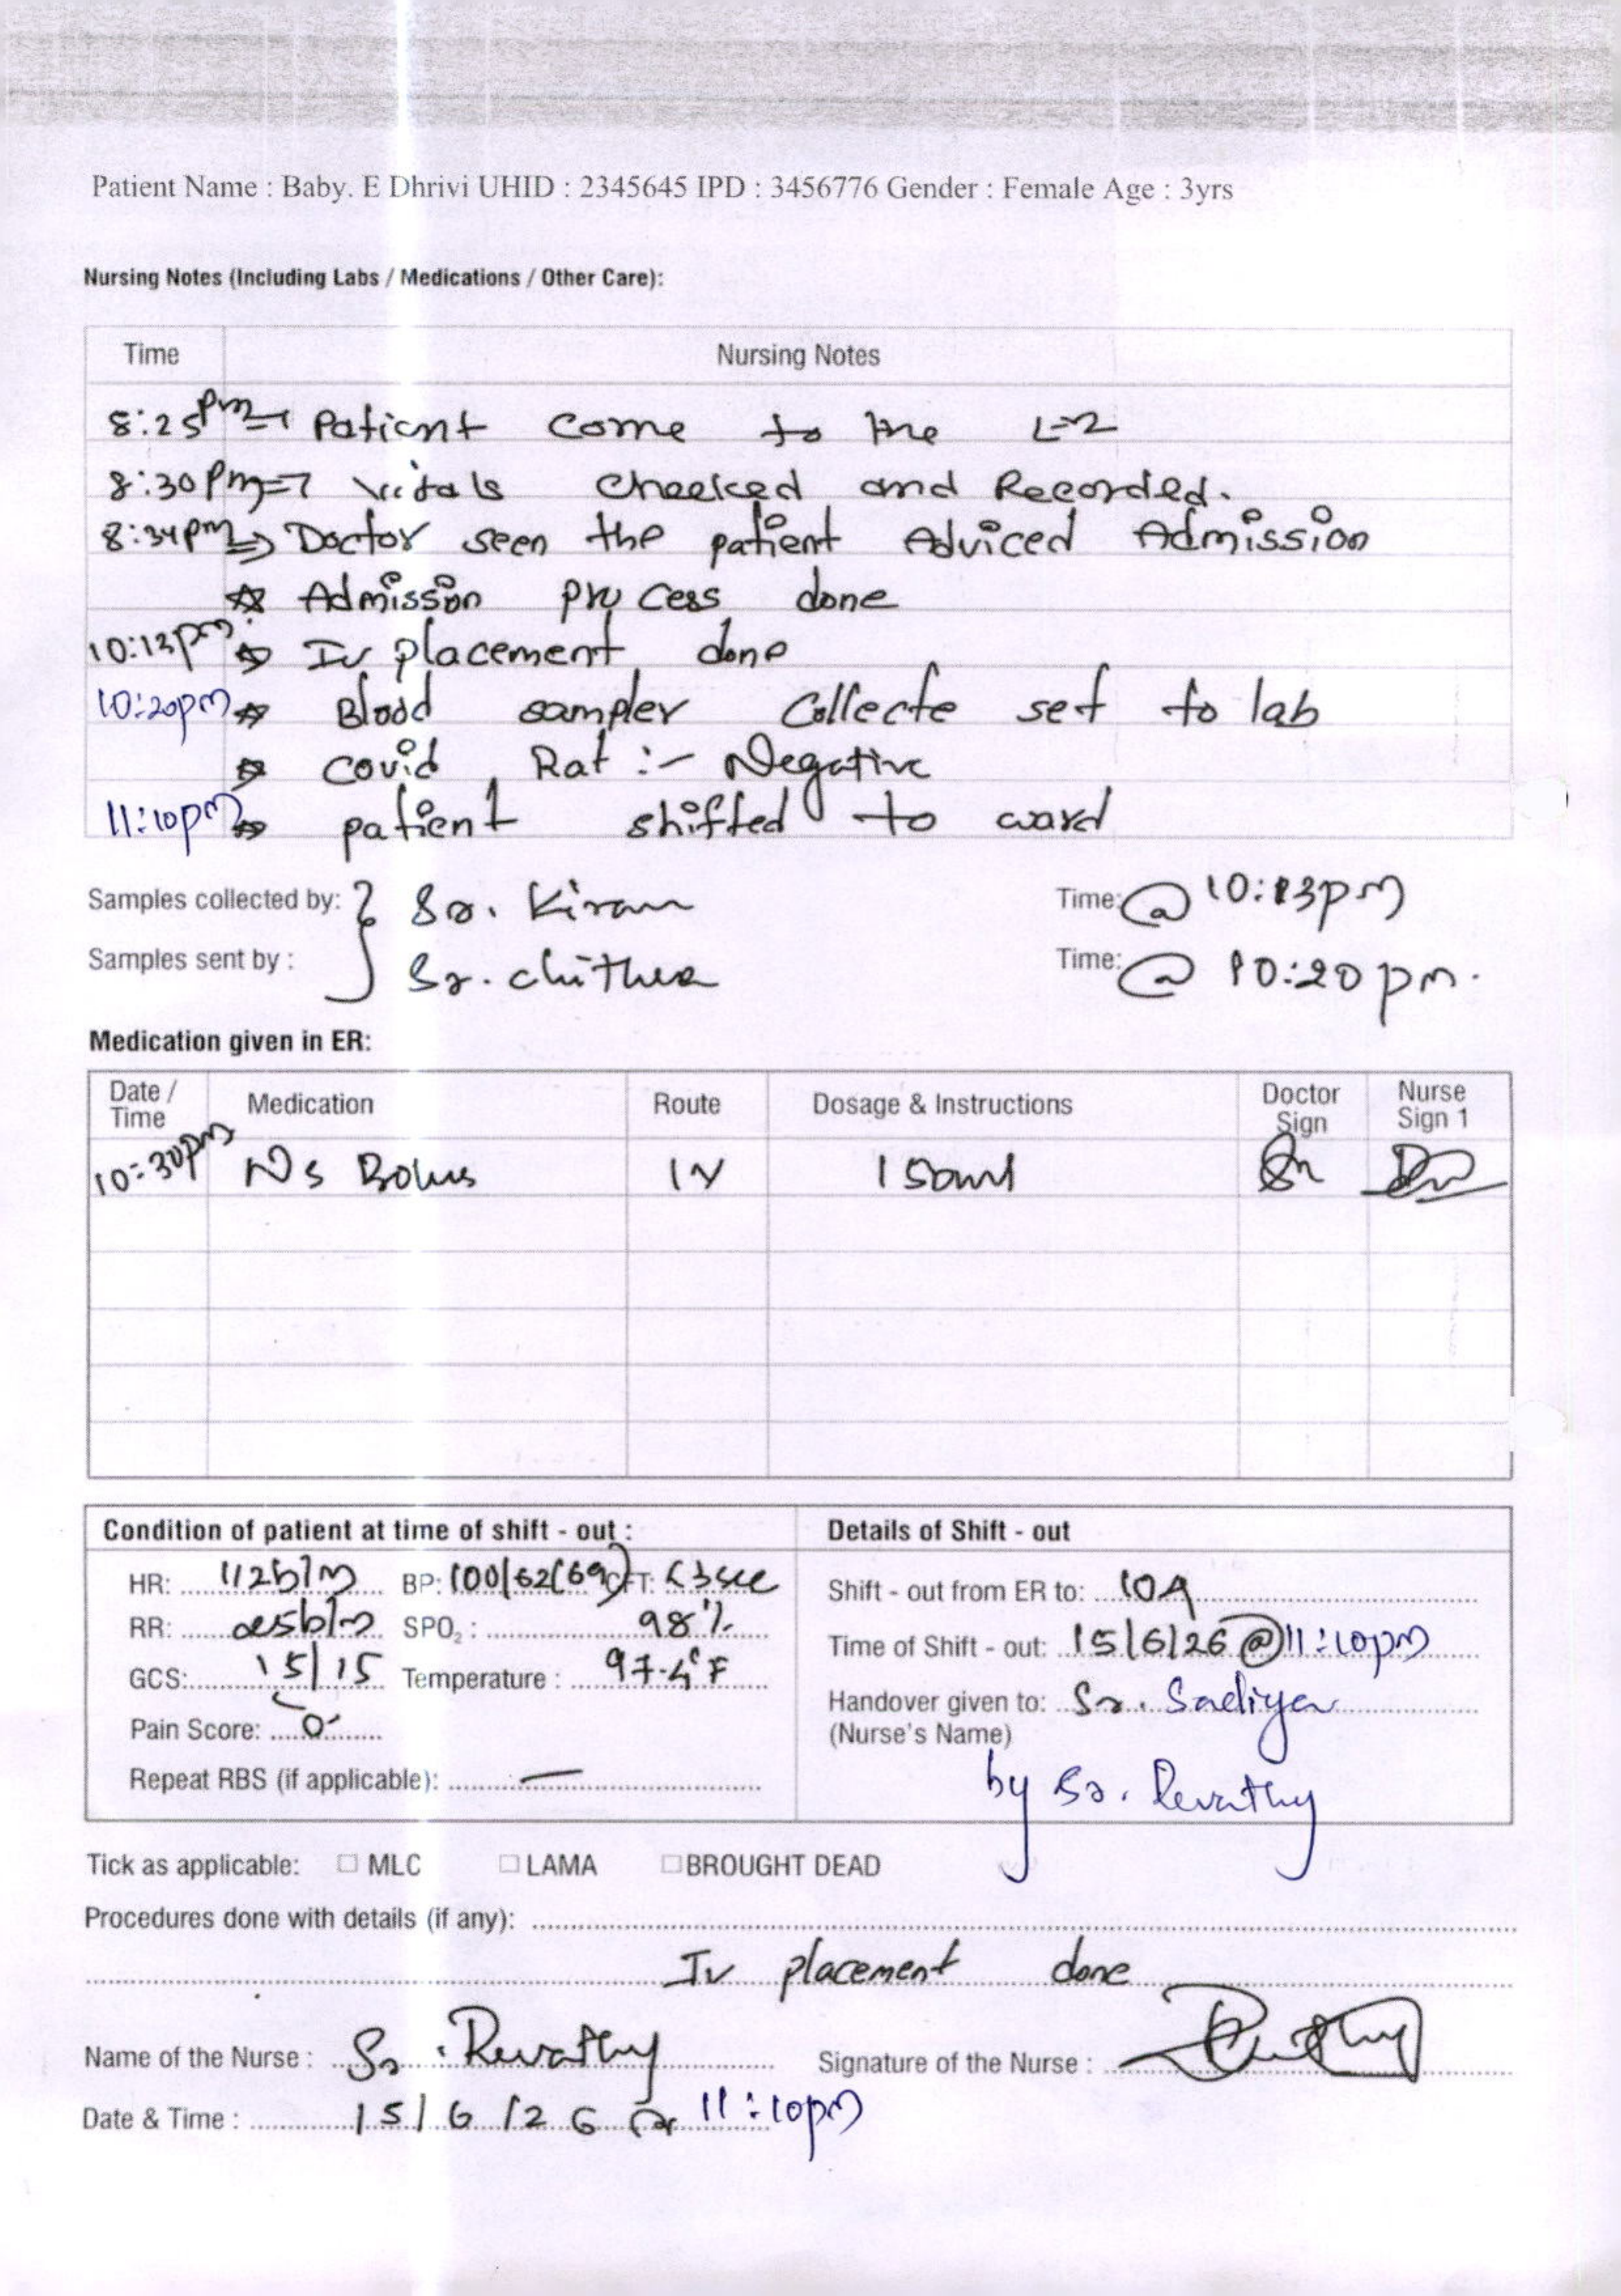 Patient Name : Baby. E Dhrivi UHID : 2345645 IPD : 3456776 Gender : Female Age : 3yrs
Nursing Notes (Including Labs / Medications / Other Care):
Time Nursing Notes
8:25pm → Patient come to the L-2
8:30pm ⇒ vitals checked and Recorded.
8:34pm ⇒ Doctor seen the patient Adviced Admission
☆ Admission process done
10:13pm ⇒ Iv placement done
10:20pm ☆ Blood sampler collecte set to lab
☆ covid Rat :- Negative
11:10pm ⇒ patient shifted to ward
Samples collected by: } Sr. Kiran Time: @ 10:13pm
Samples sent by : Sr. chithra Time: @ 10:20pm.
Medication given in ER:
Date / Time Medication Route Dosage & Instructions Doctor Sign Nurse Sign 1
10:30pm Ns Bolus IV 150ml
Condition of patient at time of shift - out : Details of Shift - out
HR: 112b/m BP: 100/62(69) CFT: <3sec Shift - out from ER to: 10A
RR: 25b/m SPO2 : 98% Time of Shift - out: 15/6/26 @ 11:10pm
GCS: 15/15 Temperature : 97.4°F Handover given to: Sr. Sadiya
Pain Score: 0 (Nurse's Name)
Repeat RBS (if applicable): — by Sr. Revathy
Tick as applicable: ☐ MLC ☐ LAMA ☐ BROUGHT DEAD
Procedures done with details (if any):
Iv placement done
Name of the Nurse : Sr. Revathy Signature of the Nurse : Revathy
Date & Time : 15/6/26 @ 11:10pm